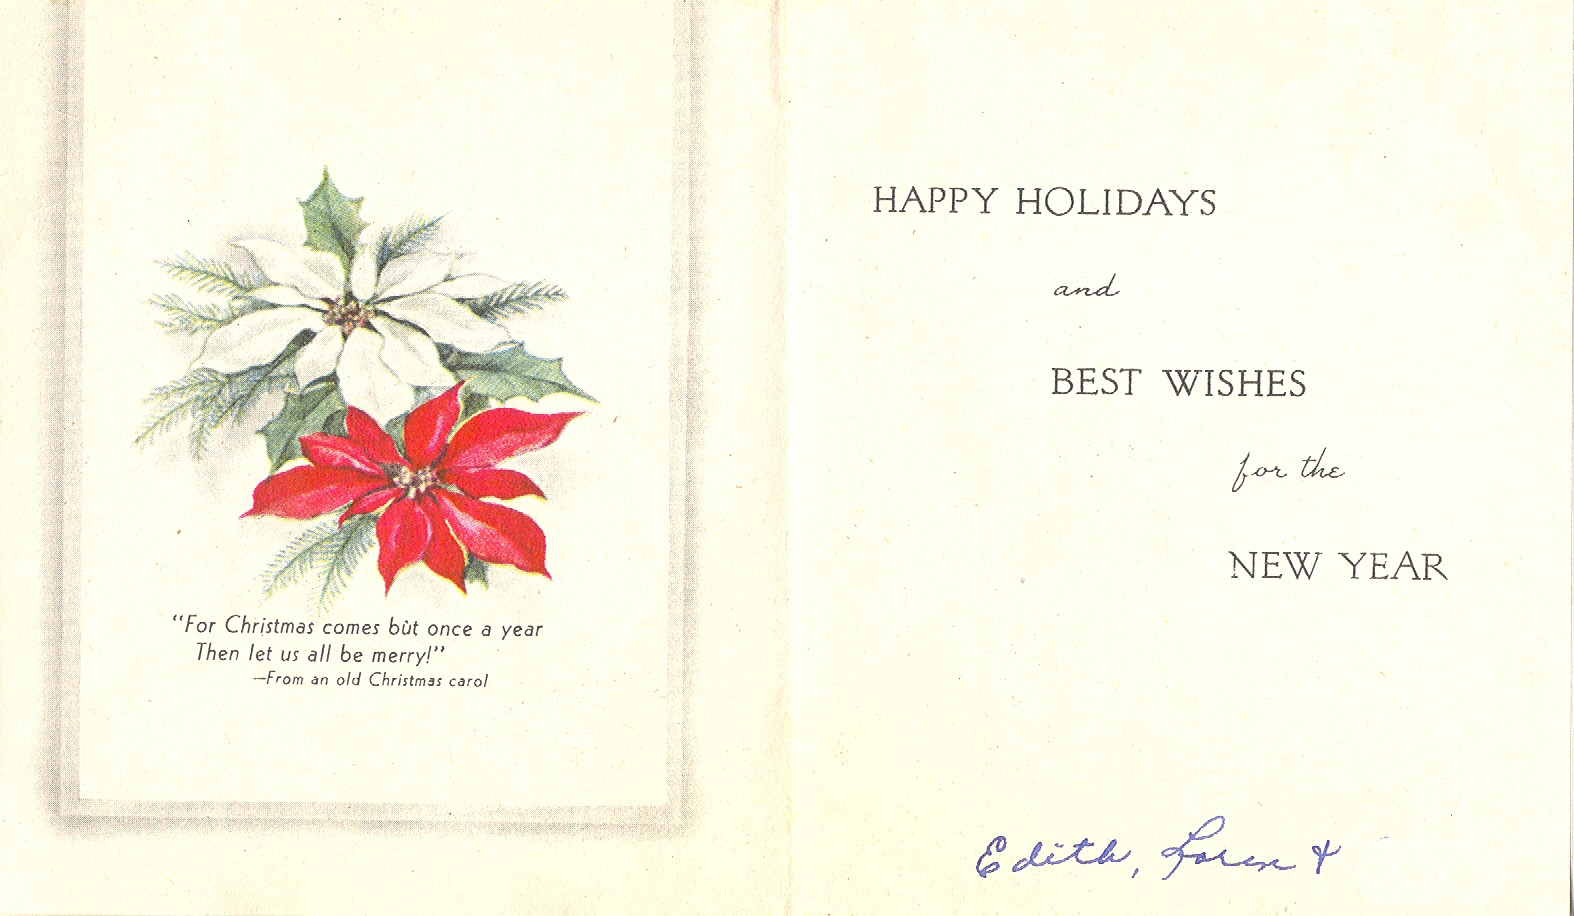 “For Christmas comes but once a year
Then let us all be merry!”
—From an old Christmas carol
HAPPY HOLIDAYS
and
BEST WISHES
for the
NEW YEAR
Edith, Loren &